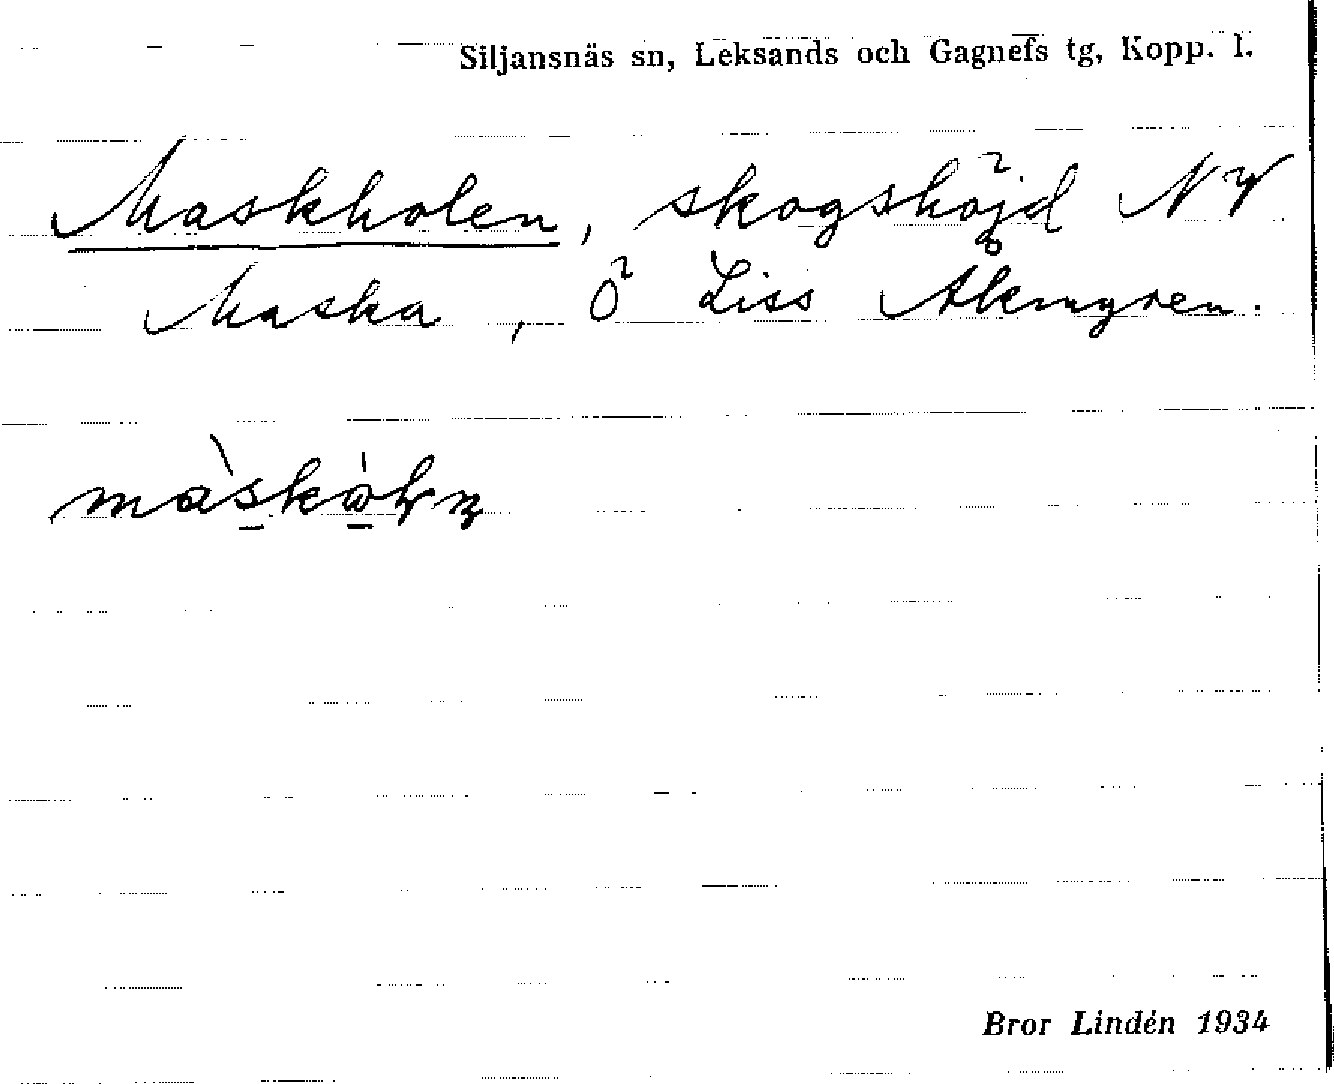 Siljansnäs sn, Leksands och Gagnefs tg, Kopp. l.
Maskholen, skogshöjd NV
Maska, Ö Liss Åkmyren.
Bror Lindén 1934